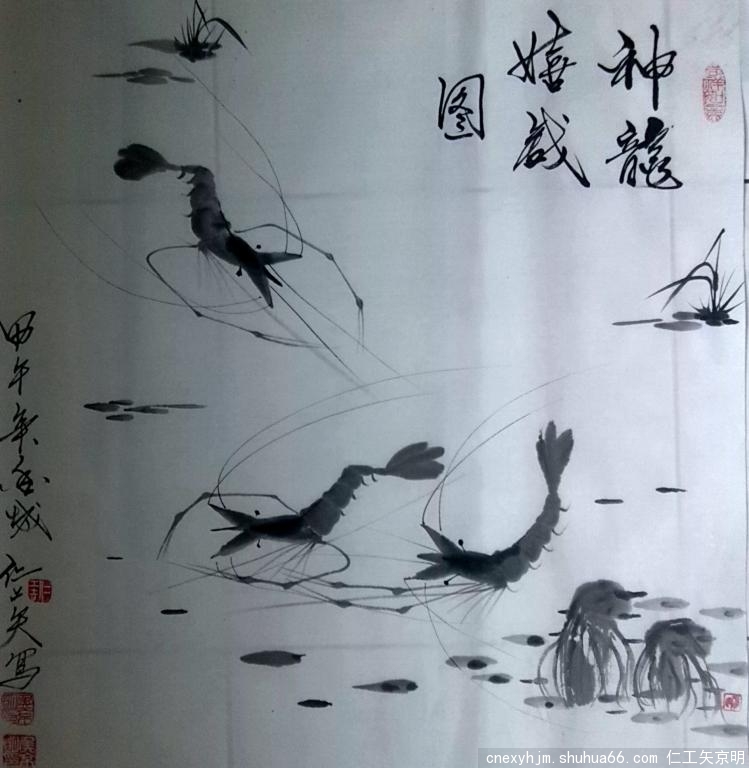 神龍
嬉戏
图
甲午年 城 仁工矢寫
cnexyhjm.shuhua66.com 仁工矢京明